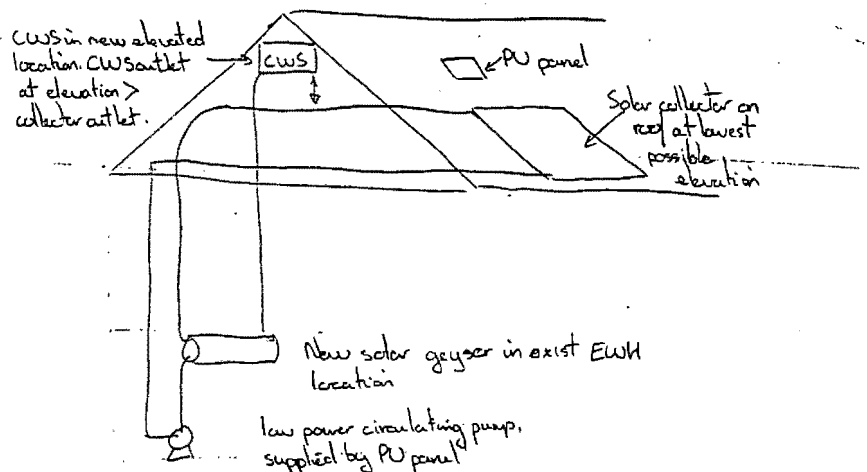 CWS in new elevated
location. CWS outlet
at elevation >
collector outlet.
CWS
PU panel
Solar collector on
roof at lowest
possible
elevation
New solar geyser in exist EWH
location
low power circulating pump,
supplied by PU panel